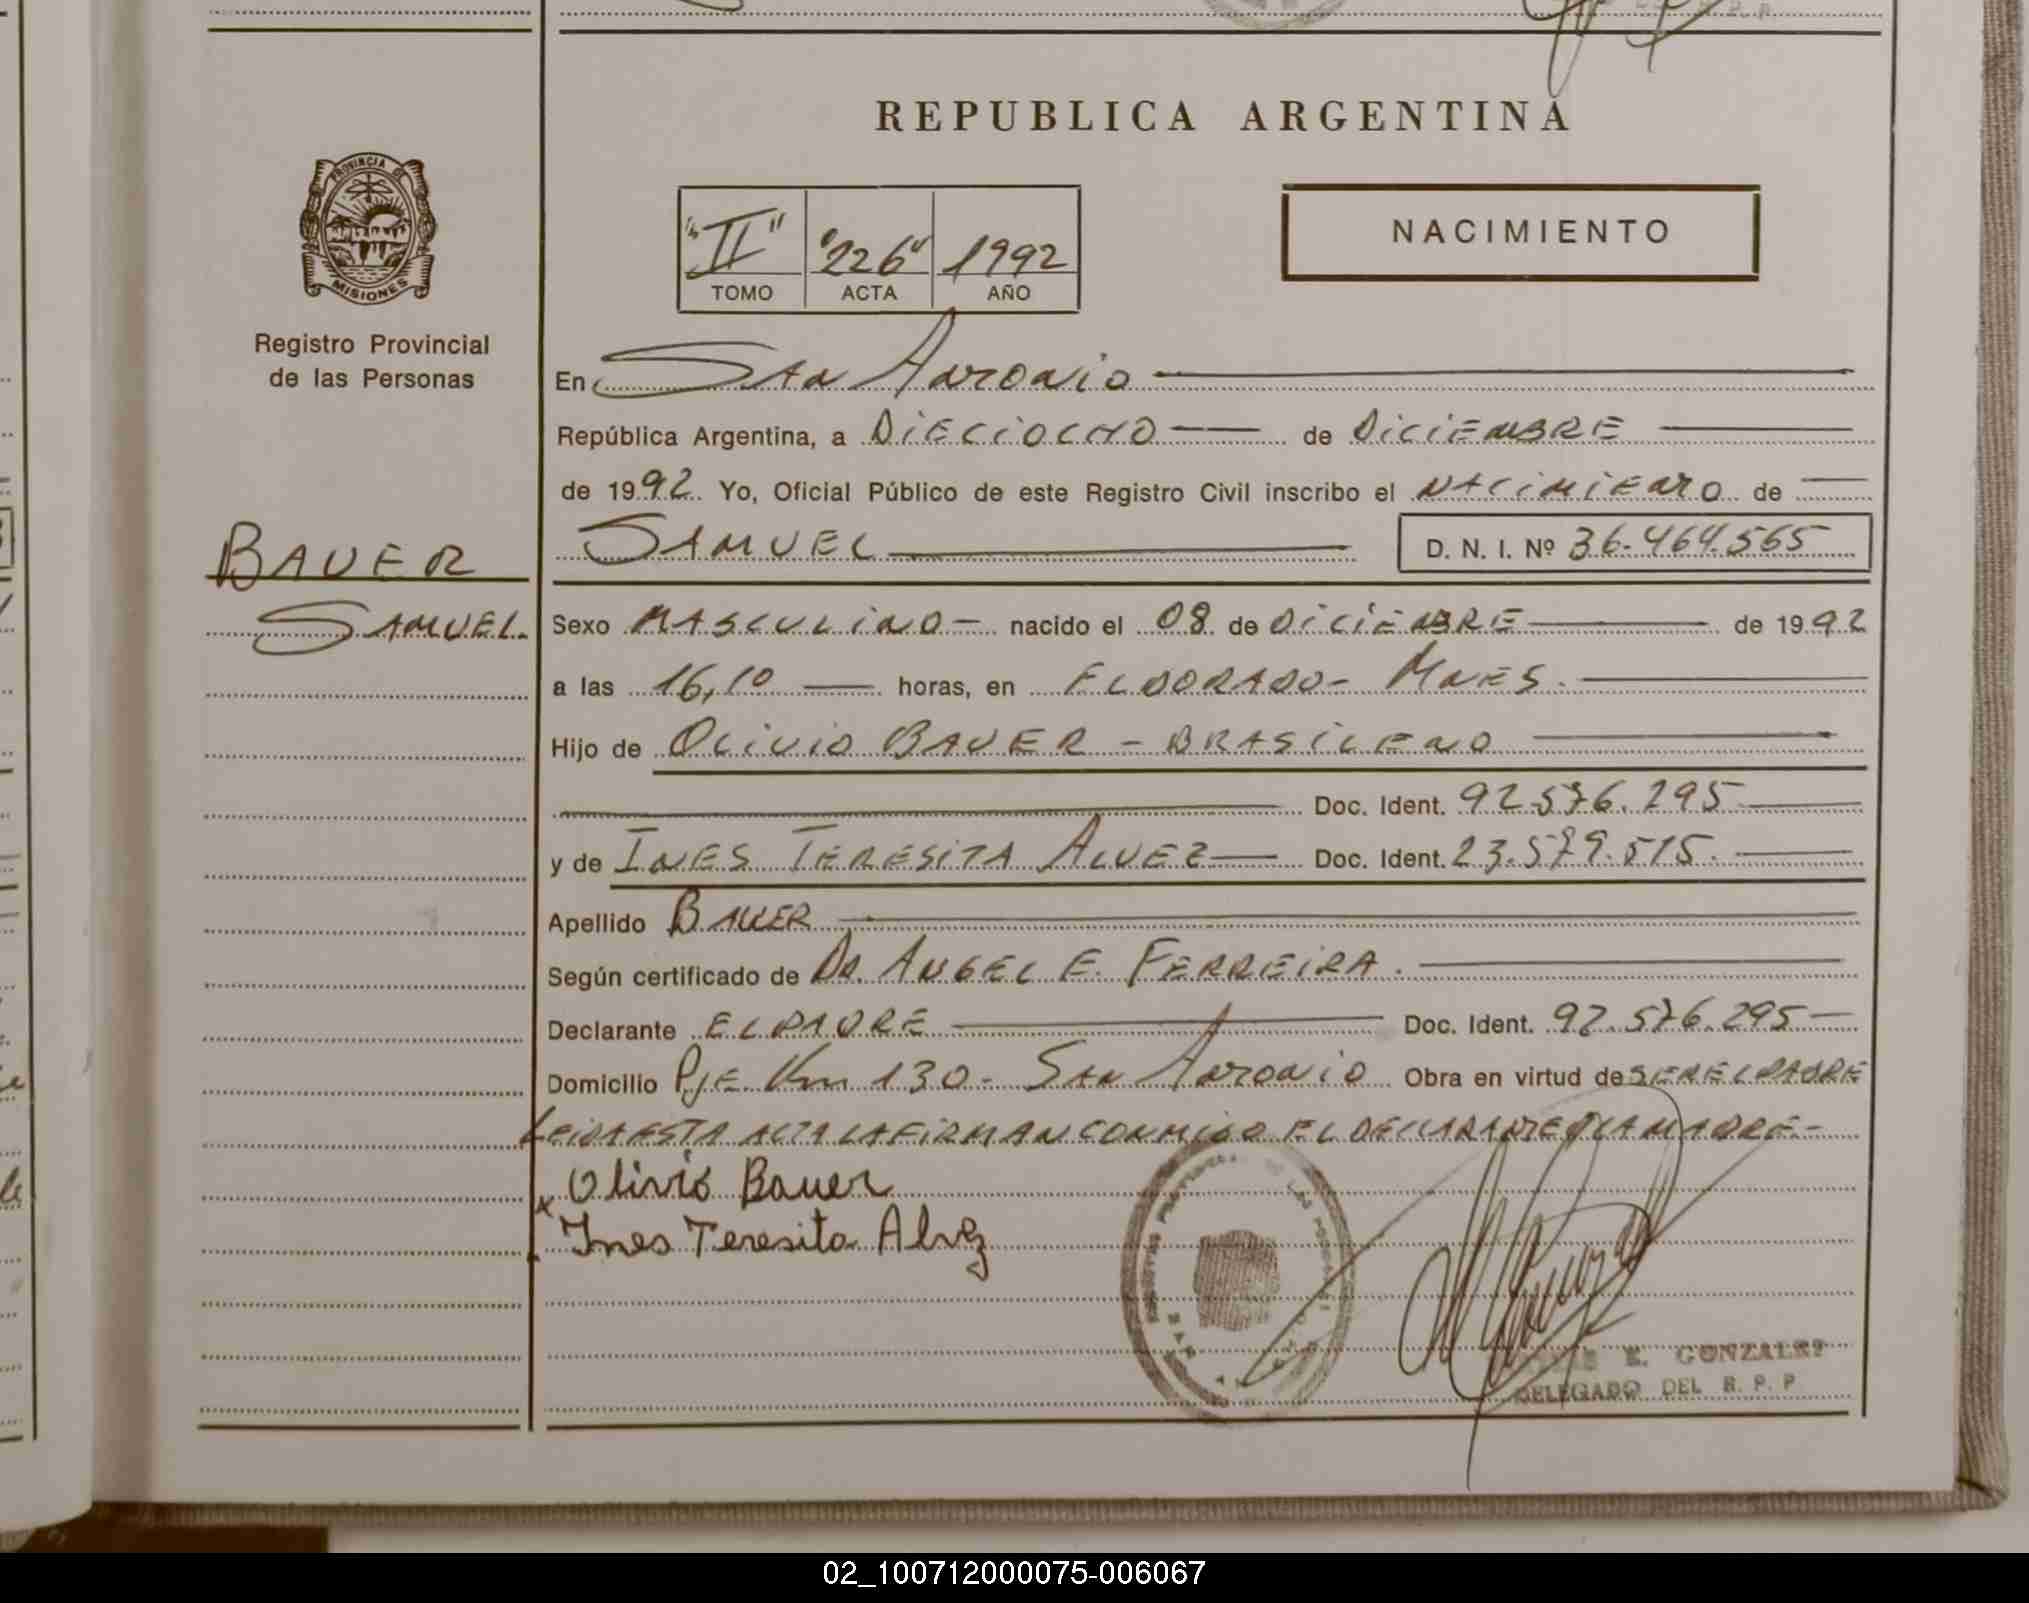 REPUBLICA ARGENTINA
PROVINCIA DE
MISIONES
Registro Provincial
de las Personas
"II" "226" 1992
TOMO ACTA AÑO
NACIMIENTO
En San Antonio
República Argentina, a DIECIOCHO de DICIEMBRE
de 1992. Yo, Oficial Público de este Registro Civil inscribo el NACIMIENTO de
SAMUEL D. N. I. Nº 36.464.565
BAUER
SAMUEL.
Sexo MASCULINO - nacido el 08 de DICIEMBRE de 1992
a las 16,10 horas, en ELDORADO - MNES.
Hijo de OLIVIO BAUER - BRASILENO
Doc. Ident. 92.576.295
y de INES TERESITA ALVEZ Doc. Ident. 23.579.515.
Apellido BAUER
Según certificado de DR. ANGEL E. FERREIRA.
Declarante EL PADRE Doc. Ident. 92.576.295
Domicilio PJE Km 130 - San Antonio Obra en virtud de SER EL PADRE
LEIDA ESTA ACTA LA FIRMAN CONMIGO EL DECLARANTE Y LA MADRE.-
x Olivio Bauer
Ines Teresita Alvez
E. GONZALEZ
DELEGADO DEL R. P. P
02_100712000075-006067